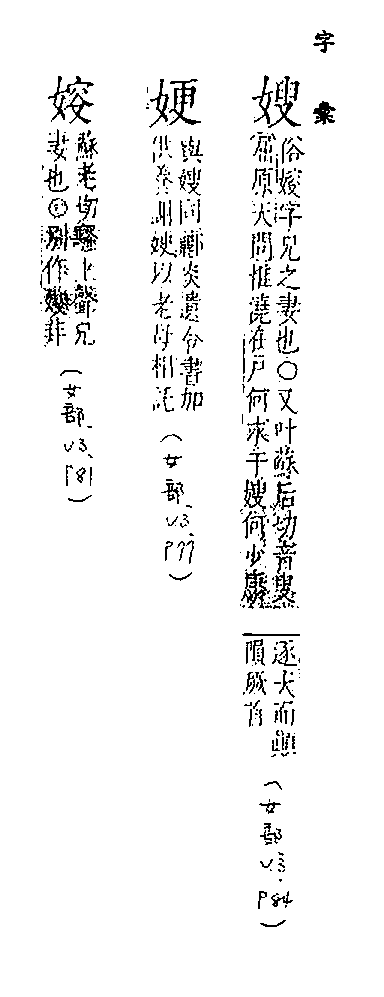 字彙
嫂
俗㛐字兄之妻也○又叶蘇后切音叟
屈原天問惟澆在戶何求于嫂何少康
逐犬而顛
隕厥首
(女部、V.3. P84)
㛐
與嫂同酈炎遺令書加
供養謝嫂以老母相託
(女部、V3. P77)
蘇老切騷上聲兄
妻也◎別作嫂非
(女部、V3、P81)